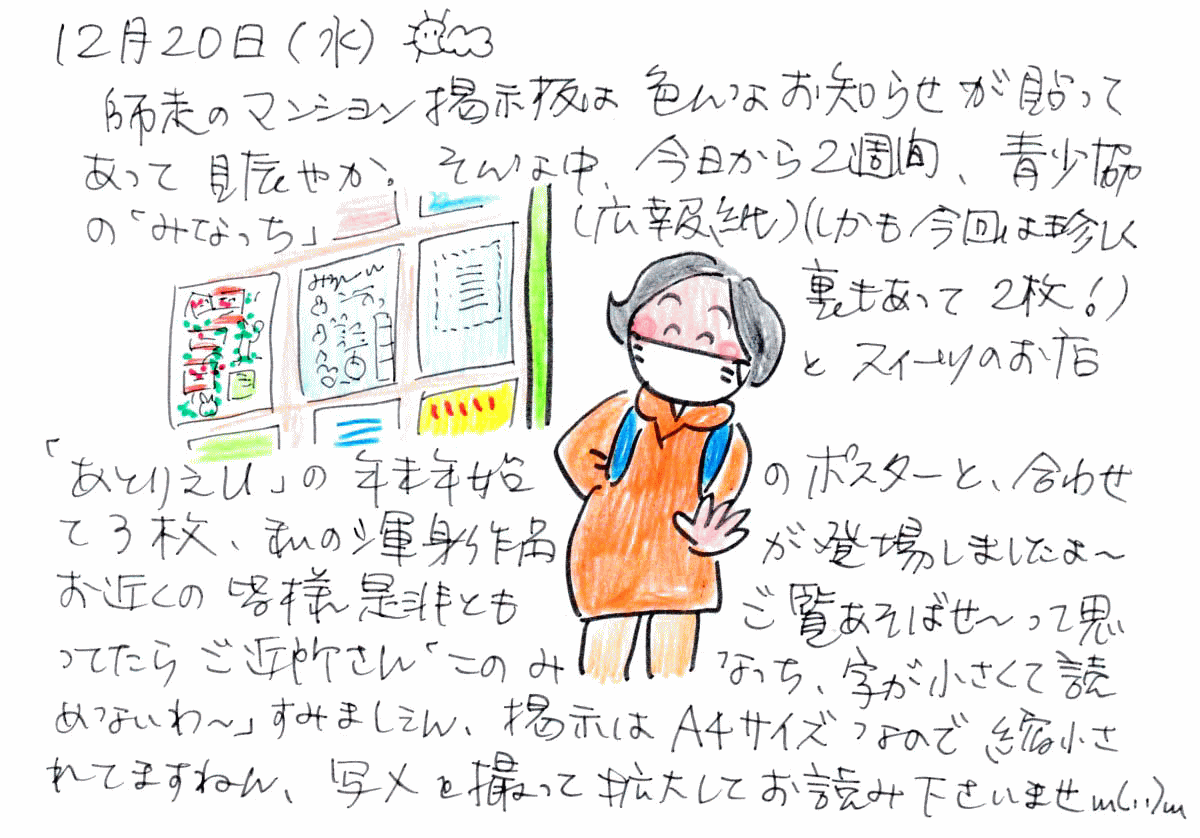 12月20日(水)
師走のマンション掲示板は色んなお知らせが貼って
あって賑やか。そんな中、今日から2週間、青少協
の「みなっち」(広報紙)(しかも今回は珍しく
裏もあって2枚!)
とスイーツのお店
「あとりえひ」の年末年始のポスターと、合わせ
て3枚、私の渾身作品が登場しましたよ〜
お近くの皆様是非ともご覧あそばせ〜って思
ってたらご近所さん「このみなっち、字が小さくて読
めないわ〜」すみましぇん、掲示はA4サイズなので縮小さ
れてますねん、写メを撮って拡大してお読み下さいませm(..)m